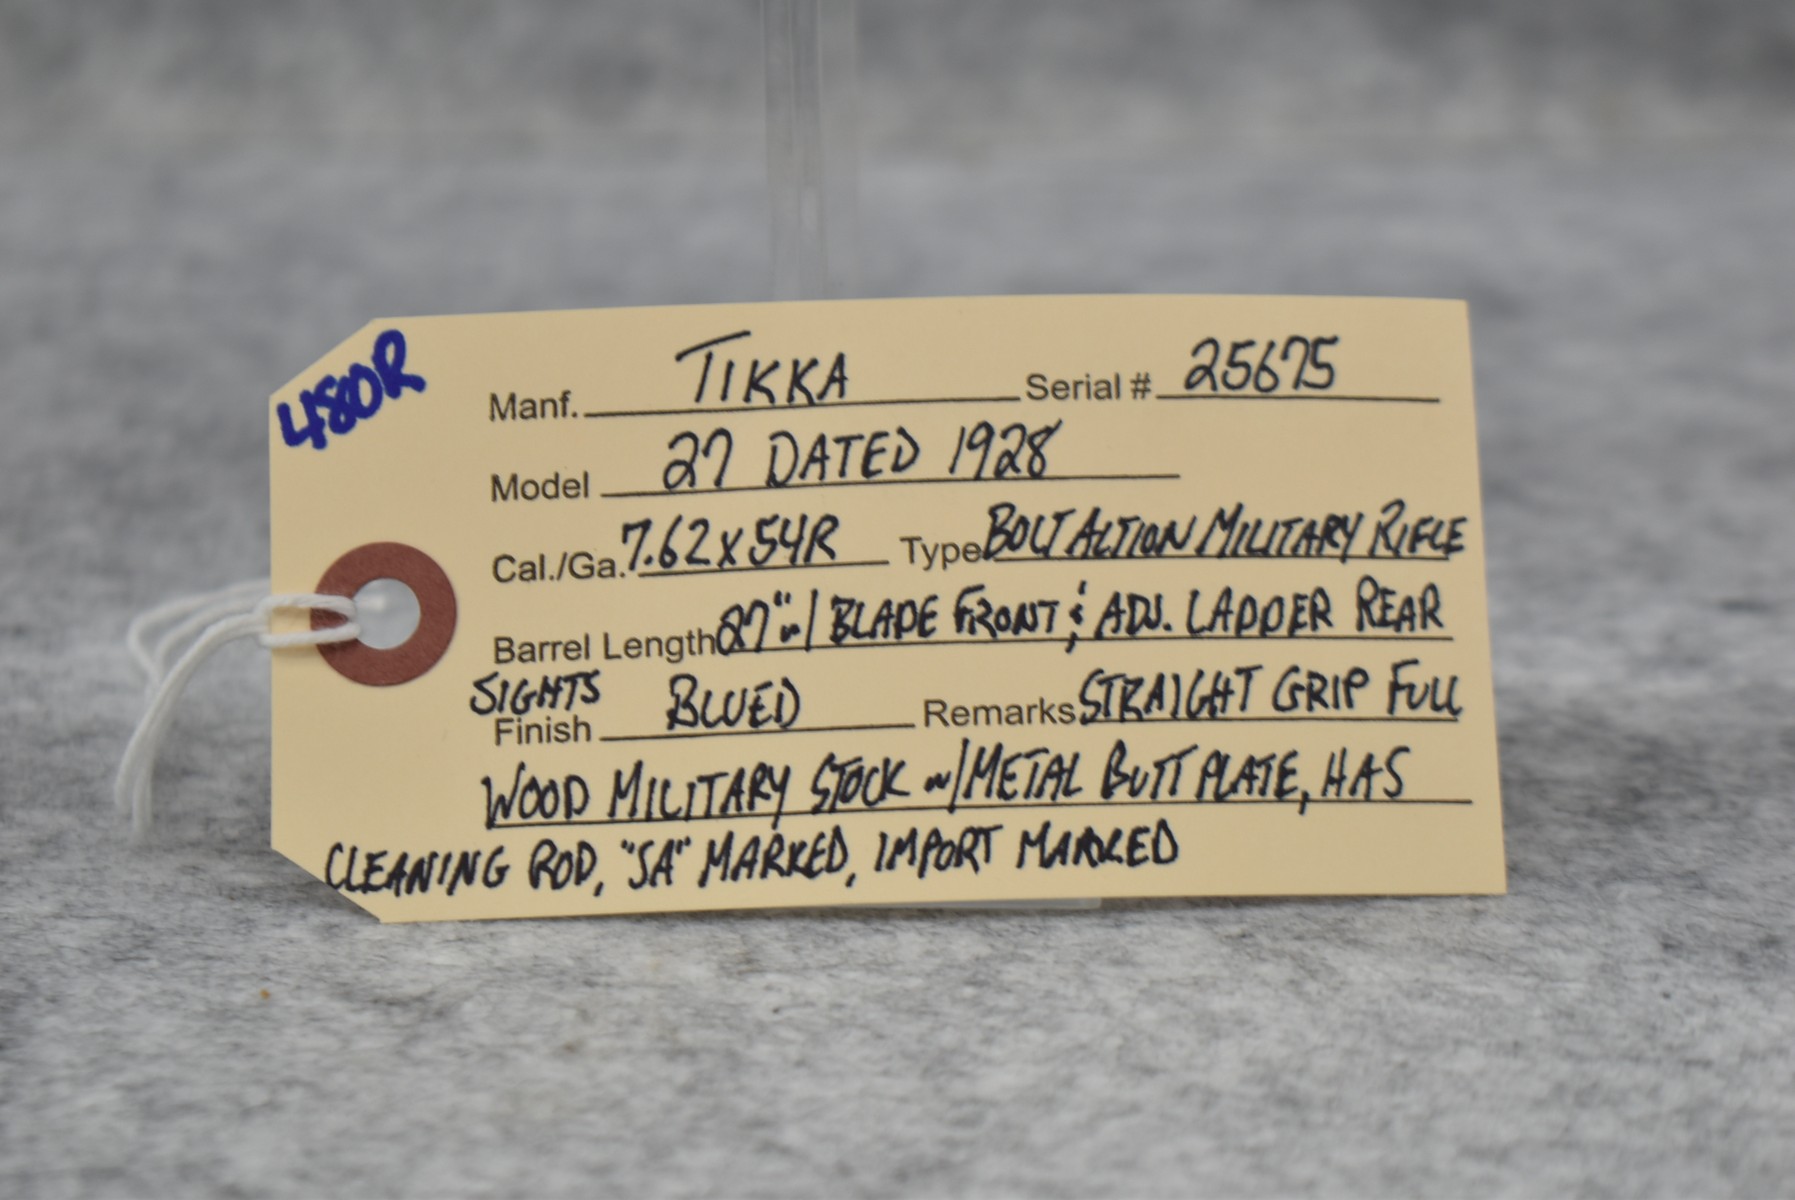 480R
Manf. TIKKA Serial # 25675
Model 27 DATED 1928
Cal./Ga. 7.62x54R Type BOLT ACTION MILITARY RIFLE
Barrel Length 27" w/ BLADE FRONT & ADJ. LADDER REAR
SIGHTS
Finish BLUED Remarks STRAIGHT GRIP FULL
WOOD MILITARY STOCK w/ METAL BUTT PLATE, HAS
CLEANING ROD, "SA" MARKED, IMPORT MARKED